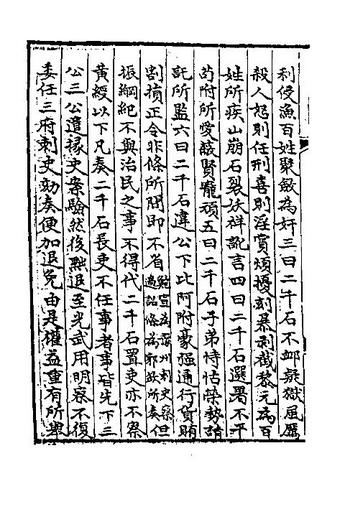 利侵漁百姓聚斂為奸三曰二千石不卹疑獄風厲
殺人怒則任刑喜則淫賞煩擾刻暴剥截黎元為百
姓所疾山崩石裂妖祥訛言四曰二千石選署不平
苟附所愛蔽賢寵頑五曰二千石子弟恃怙榮勢請
託所監六曰二千石違公下比阿附豪强通行貨賄
割損正令非條所問即不省鮑宣為豫州刺史察過詔條為郭欽所奏但
振綱紀不與治民之事不得代二千石置吏亦不察
黄綬以下凡奏二千石長吏不任事者事皆先下三
公三公遣掾史案驗然後黜退至光武用明察不復
委任三府刺史劾奏便加退免由是權益重有所舉